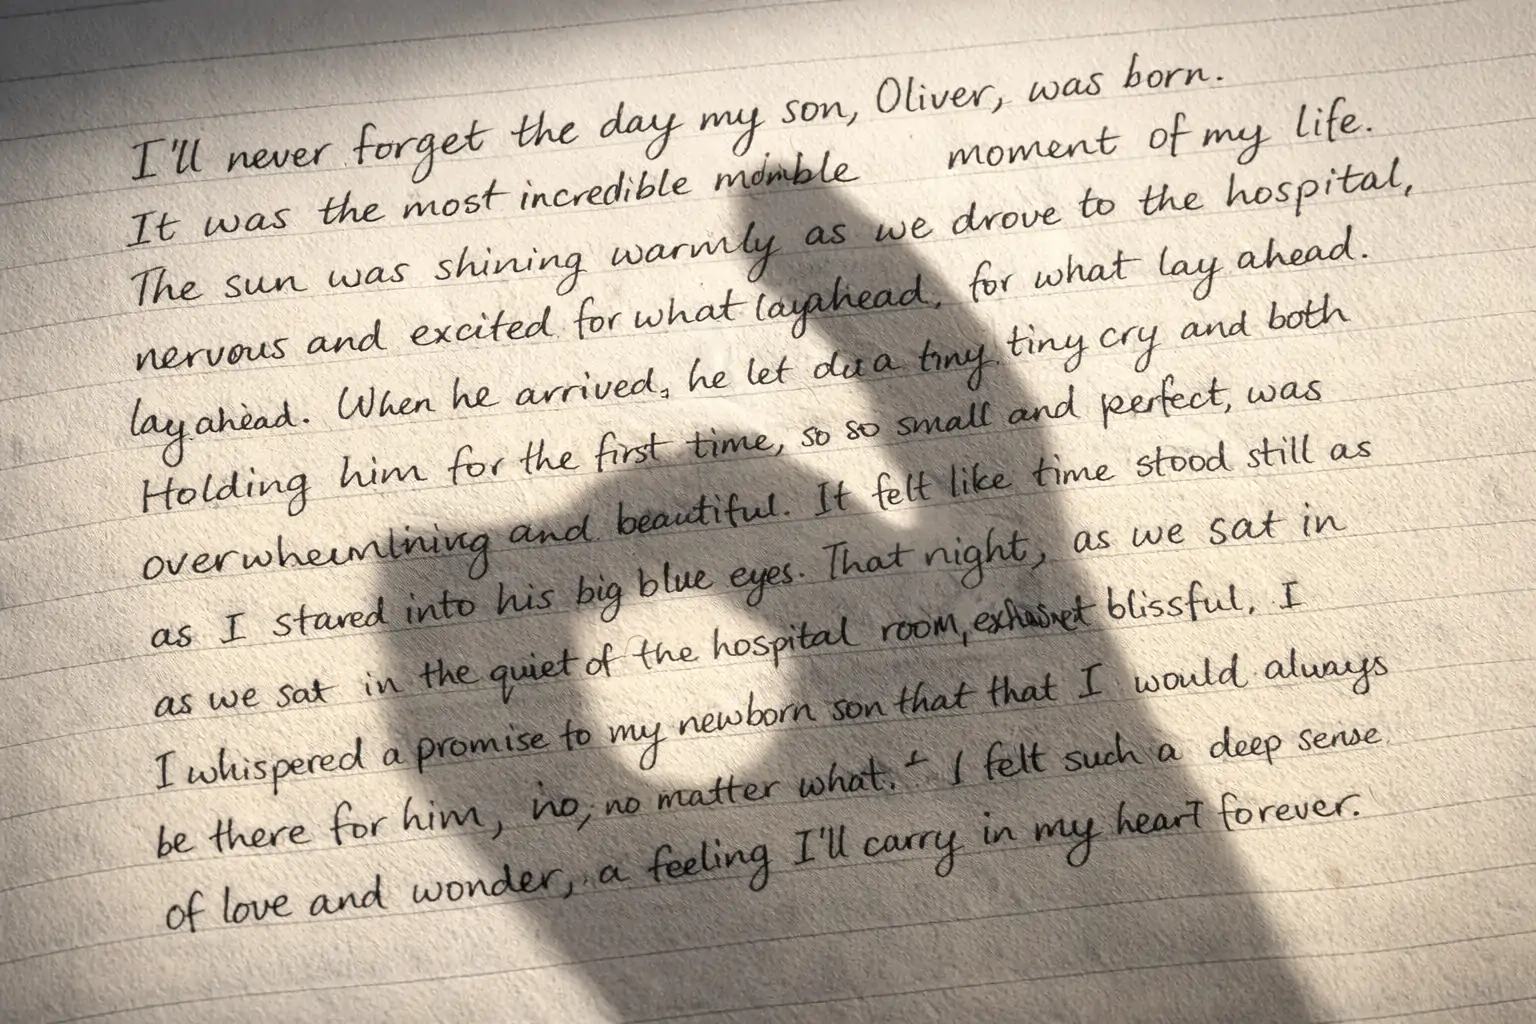 I'll never forget the day my son, Oliver, was born.
It was the most incredible moment of my life.
The sun was shining warmly as we drove to the hospital,
nervous and excited for what layahead, for what lay ahead.
lay ahead. When he arrived, he let a tiny tiny cry and both
Holding him for the first time, so so small and perfect, was
and beautiful. It felt like time stood still as
as I stared into his big blue eyes. That night, as we sat in
as we sat in the quiet of the hospital room, blissful, I
I whispered a promise to my newborn son that that I would always
be there for him, no, no matter what. I felt such a deep sense
of love and wonder, a feeling I'll carry in my heart forever.